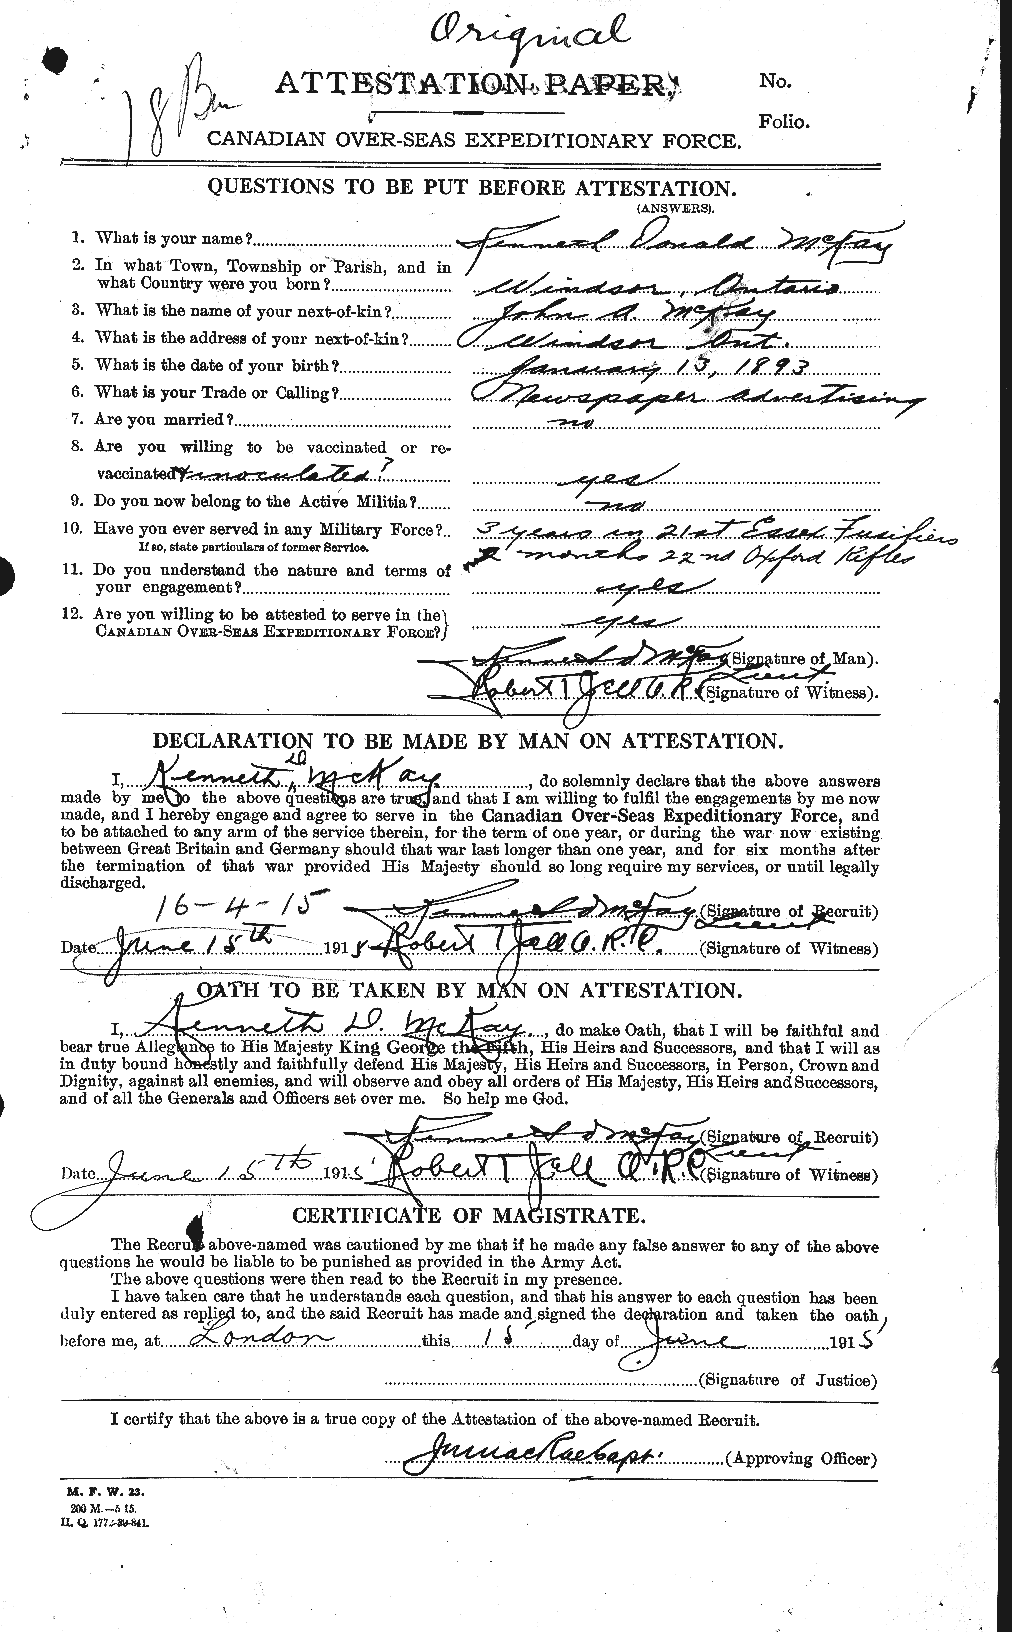 Original
ATTESTATION PAPER.
No.
Folio.
18 Bn
CANADIAN OVER-SEAS EXPEDITIONARY FORCE.
QUESTIONS TO BE PUT BEFORE ATTESTATION.
(ANSWERS).
1. What is your name? Kenneth Donald McKay
2. In what Town, Township or Parish, and in
what Country were you born? Windsor, Ontario
3. What is the name of your next-of-kin? John A. McKay
4. What is the address of your next-of-kin? Windsor Ont.
5. What is the date of your birth? January 13, 1893
6. What is your Trade or Calling? Newspaper advertising
7. Are you married? no
8. Are you willing to be vaccinated or re-
vaccinated & inoculated? yes
9. Do you now belong to the Active Militia? no
10. Have you ever served in any Military Force? 3 years in 21st Essex Fusifiers
If so, state particulars of former Service. 2 months 22nd Oxford Rifles
11. Do you understand the nature and terms of
your engagement? yes
12. Are you willing to be attested to serve in the
CANADIAN OVER-SEAS EXPEDITIONARY FORCE? yes
Kenneth D McKay (Signature of Man).
Lieut
Robert T Jell (Signature of Witness).
DECLARATION TO BE MADE BY MAN ON ATTESTATION.
I, Kenneth D McKay, do solemnly declare that the above answers
made by me to the above questions are true, and that I am willing to fulfil the engagements by me now
made, and I hereby engage and agree to serve in the Canadian Over-Seas Expeditionary Force, and
to be attached to any arm of the service therein, for the term of one year, or during the war now existing
between Great Britain and Germany should that war last longer than one year, and for six months after
the termination of that war provided His Majesty should so long require my services, or until legally
discharged.
16-4-15
Kenneth D McKay (Signature of Recruit)
Lieut
Date June 15th 1915 Robert T Jell (Signature of Witness)
OATH TO BE TAKEN BY MAN ON ATTESTATION.
I, Kenneth D. McKay, do make Oath, that I will be faithful and
bear true Allegiance to His Majesty King George the Fifth, His Heirs and Successors, and that I will as
in duty bound honestly and faithfully defend His Majesty, His Heirs and Successors, in Person, Crown and
Dignity, against all enemies, and will observe and obey all orders of His Majesty, His Heirs and Successors,
and of all the Generals and Officers set over me. So help me God.
Kenneth D McKay (Signature of Recruit)
Lieut
Date June 15th 1915 Robert T Jell (Signature of Witness)
CERTIFICATE OF MAGISTRATE.
The Recruit above-named was cautioned by me that if he made any false answer to any of the above
questions he would be liable to be punished as provided in the Army Act.
The above questions were then read to the Recruit in my presence.
I have taken care that he understands each question, and that his answer to each question has been
duly entered as replied to, and the said Recruit has made and signed the declaration and taken the oath
before me, at London this 15 day of June 1915
(Signature of Justice)
I certify that the above is a true copy of the Attestation of the above-named Recruit.
(Approving Officer)
M. F. W. 23.
200 M.—5 15.